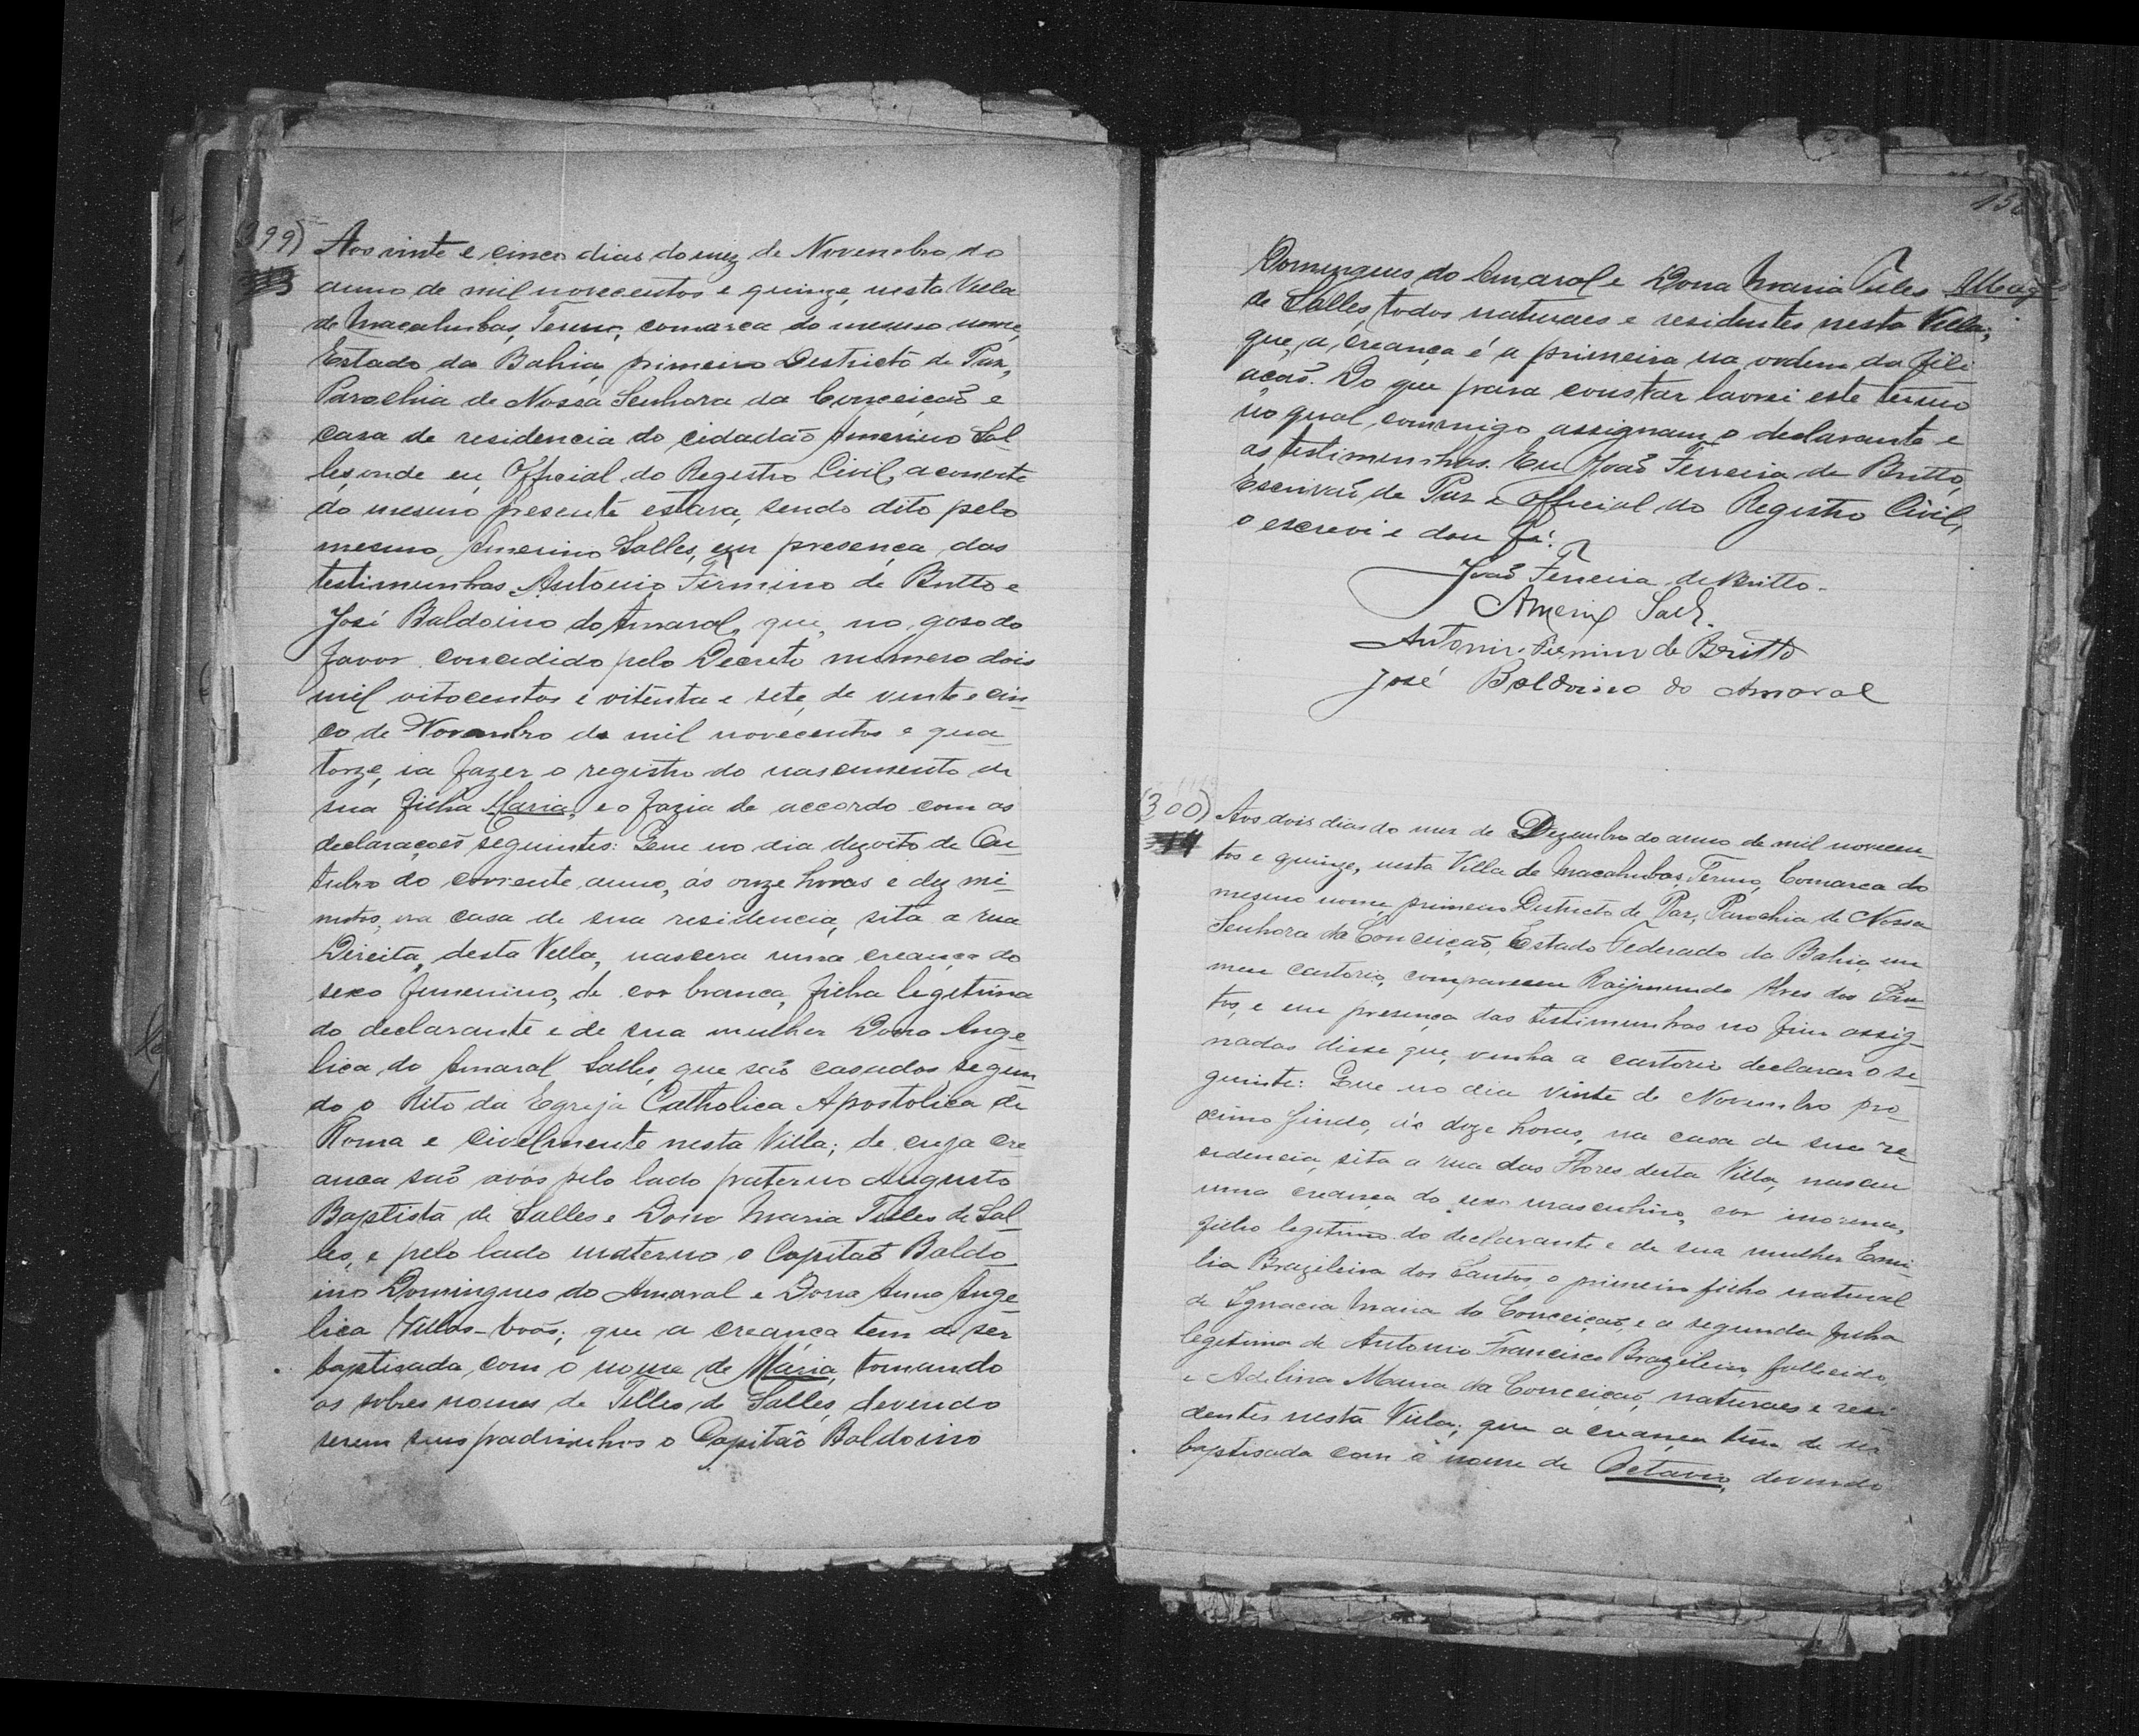 299)
Aos vinte e cinco dias do mez de Novembro do
anno de mil novecentos e quinze, nesta Villa
de Macahubas, Termo, comarca do mesmo nome,
Estado da Bahia, primeiro Districto de Paz,
Parochia de Nossa Senhora da Conceição e
casa de residencia do cidadão Amerino Sal
les, onde eu, Official do Registro Civil, a convite
do mesmo presente estava, sendo dito pelo
mesmo, Amerino Salles, em presença das
testimunhas Antonio Firmino de Britto e
José Baldoino do Amaral, que, no goso do
favor concedido pelo Decreto numero dois
mil oitocentos e oitenta e sete, de vinte e cin-
co de Novembro de mil novecentos e qua-
torze, ia fazer o registro do nascimento de
sua filha Maria, e o fazia de accordo com as
declarações seguintes: Que no dia dezoito de Ou-
tubro do corrente anno, ás onze horas e dez mi-
nutos, na casa de sua residencia, sita a rua
Direita, desta Villa, nascera uma creança do
sexo femenino, de cor branca, filha legitima
do declarante e de sua mulher Dona Ange-
lica do Amaral Salles, que são casados segun
do o Rito da Egreja Catholica Apostolica de
Roma e civilmente nesta Villa; de cuja cre-
ança são avós pelo lado paterno Augusto
Baptista de Salles e Dona Maria Telles de Sal-
les, e pelo lado materno o Capitão Baldo-
ino Domingues do Amaral e Dona Anna Ange-
lica Villas-boas; que a creança tem de ser
baptisada com o nome de Maria, tomando
os sobres nomes de Telles de Salles, devendo
serem seus padrinhos o Capitão Baldoino
150
Domingues do Amaral e Dona Maria Telles
de Salles, todos naturaes e residentes nesta Villa;
que, a creança é a primeira na ordem da fili
ação. Do que para constar lavrei este termo
no qual, commigo assignam o declarante e
as testimunhas. Eu João Ferreira de Britto,
Escrivão de Paz e Official do Registro Civil,
o escrevi e dou fé.
João Ferreira de Britto.
Amerino Salles.
Antonio Firmino de Britto
José Baldoino do Amaral
(300)
14
Aos dois dias do mez de Dezembro do anno de mil novecen-
tos e quinze, nesta Villa de Macahubas, Termo, Comarca do
mesmo nome, primeiro Districto de Paz, Parochia de Nossa
Senhora da Conceição, Estado Federado da Bahia, em
meu cartorio, compareceu Raijmundo Alves dos San-
tos, e em presença das testimunhas no fim assig-
nadas disse que, vinha a cartorio declarar o se-
guinte: Que no dia vinte de Novembro pro-
ximo findo, ás doze horas, na casa de sua re-
sidencia, sita a rua das Flores desta Villa, nasceu
uma creança do sexo masculino, cor morena,
filho legitimo do declarante e de sua mulher Emi-
lia Brazileira dos Santos, o primeiro filho natural
de Ignacia Maria da Conceição, e a segunda filha
legitima de Antonio Francisco Brazileiro, fallecido,
e Adelina Maria da Conceição, naturaes e resi-
dentes nesta Villa; que a creança tem de ser
baptisada com o nome de Octavio, devendo